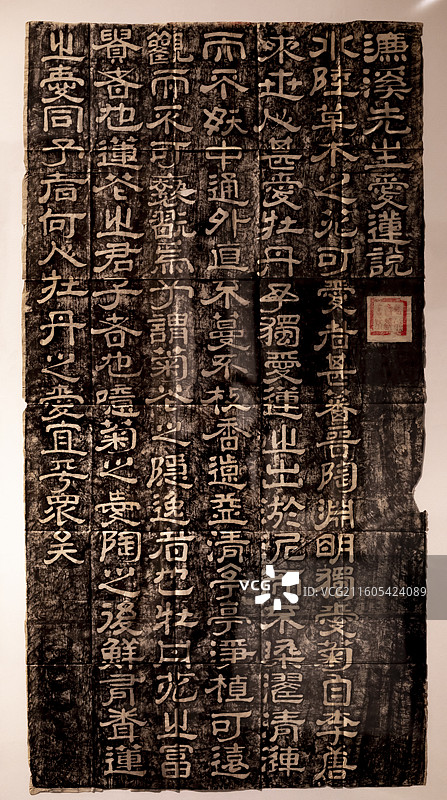 濂溪先生愛蓮說
水陸草木之花可愛者甚蕃晉陶淵明獨愛菊自李唐
來世人甚愛牡丹予獨愛蓮之出淤泥不染濯清漣
而不妖中通外直不蔓不枝香遠益清亭亭淨植可遠
觀而不可褻翫焉予謂菊花之隱逸者也牡丹花之富
貴者也蓮花之君子者也噫菊之愛陶之後鮮有聞蓮
之愛同予者何人牡丹之愛宜乎眾矣
VCG
ID: VCG211605424089